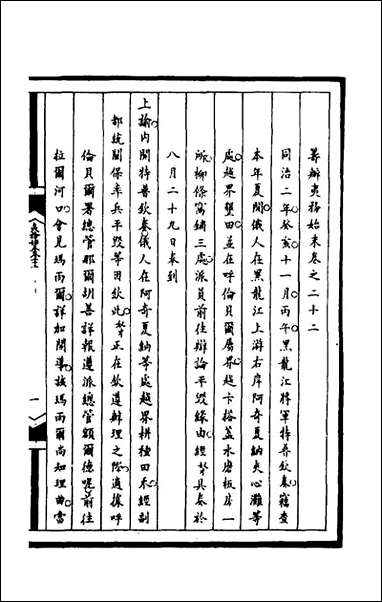 籌辦夷務始末卷之二十二
同治二年癸亥十一月丙午黑龍江將軍特普欽奏竊查
本年夏間俄人在黑龍江上游右岸阿奇夏納夾心灘等
處越界墾田並在呼倫貝爾屬界越卡搭蓋水磨板房一
所柳條窩鋪三處派員前往辯論平毀緣由經奴才具奏於
八月二十九日奉到
上諭內閣特普欽奏俄人在阿奇夏納等處越界耕種田禾經副
都統關保率兵平毀等因欽此奴才正在欽遵辦理之際適據呼
倫貝爾署總管那爾胡善詳報遵派總管額爾德呢前往
拉爾河口會見瑪雨爾詳加開導該瑪雨爾尚知理曲當
一